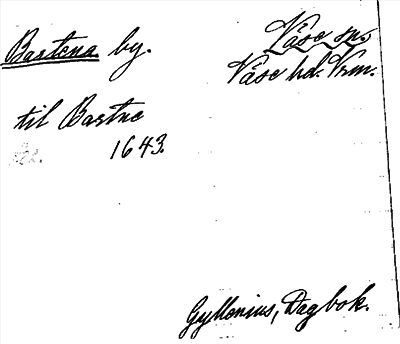 Bastena by.
Våse sn.
Våse hd. Vrm.
til Bastne
1643.
Gyllenius, Dagbok.